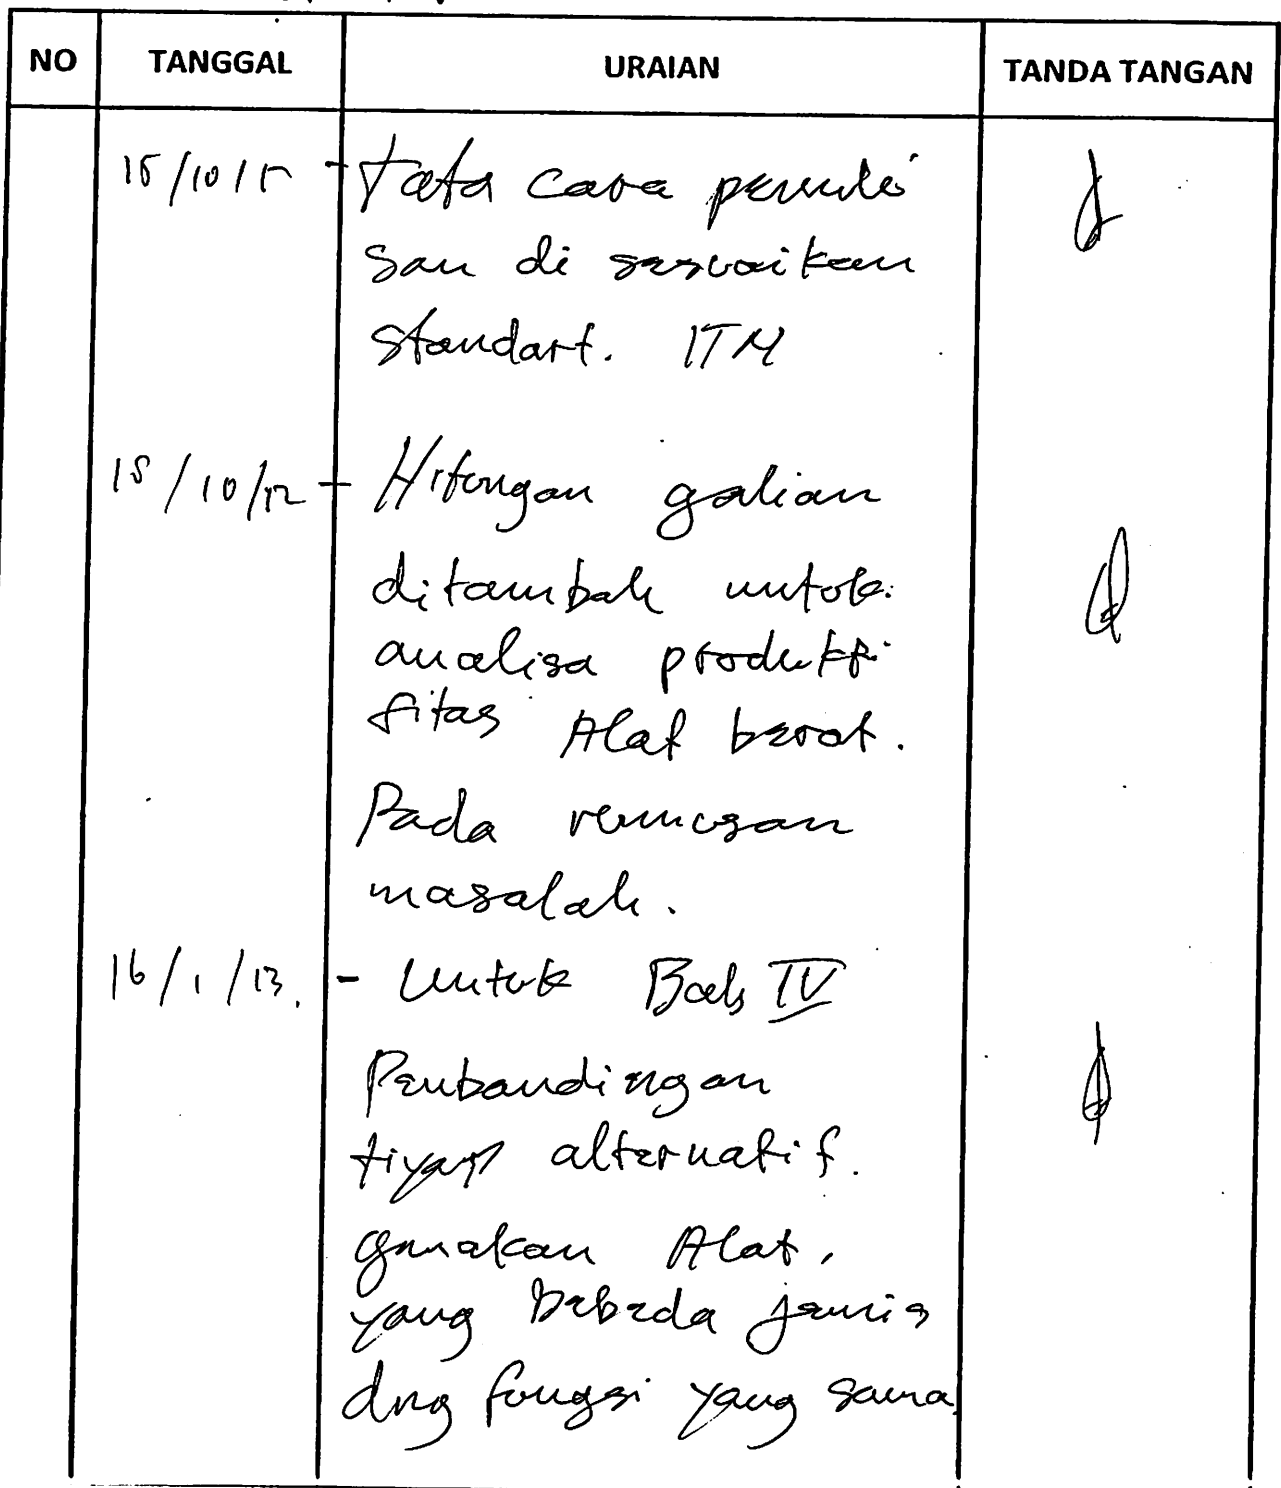 NO TANGGAL URAIAN TANDA TANGAN
- Tata cara penuli
san di sesuaikan
standart. ITM
18/10/12 - Hitungan galian
ditambah untuk
analisa produkti
fitas Alat berat.
Pada rumusan
masalah.
16/1/13. - Untuk Bab IV
Penbandingan
tiyap alternatif.
gunakan Alat,
yang bebeda jenis
dng fungsi yang sama